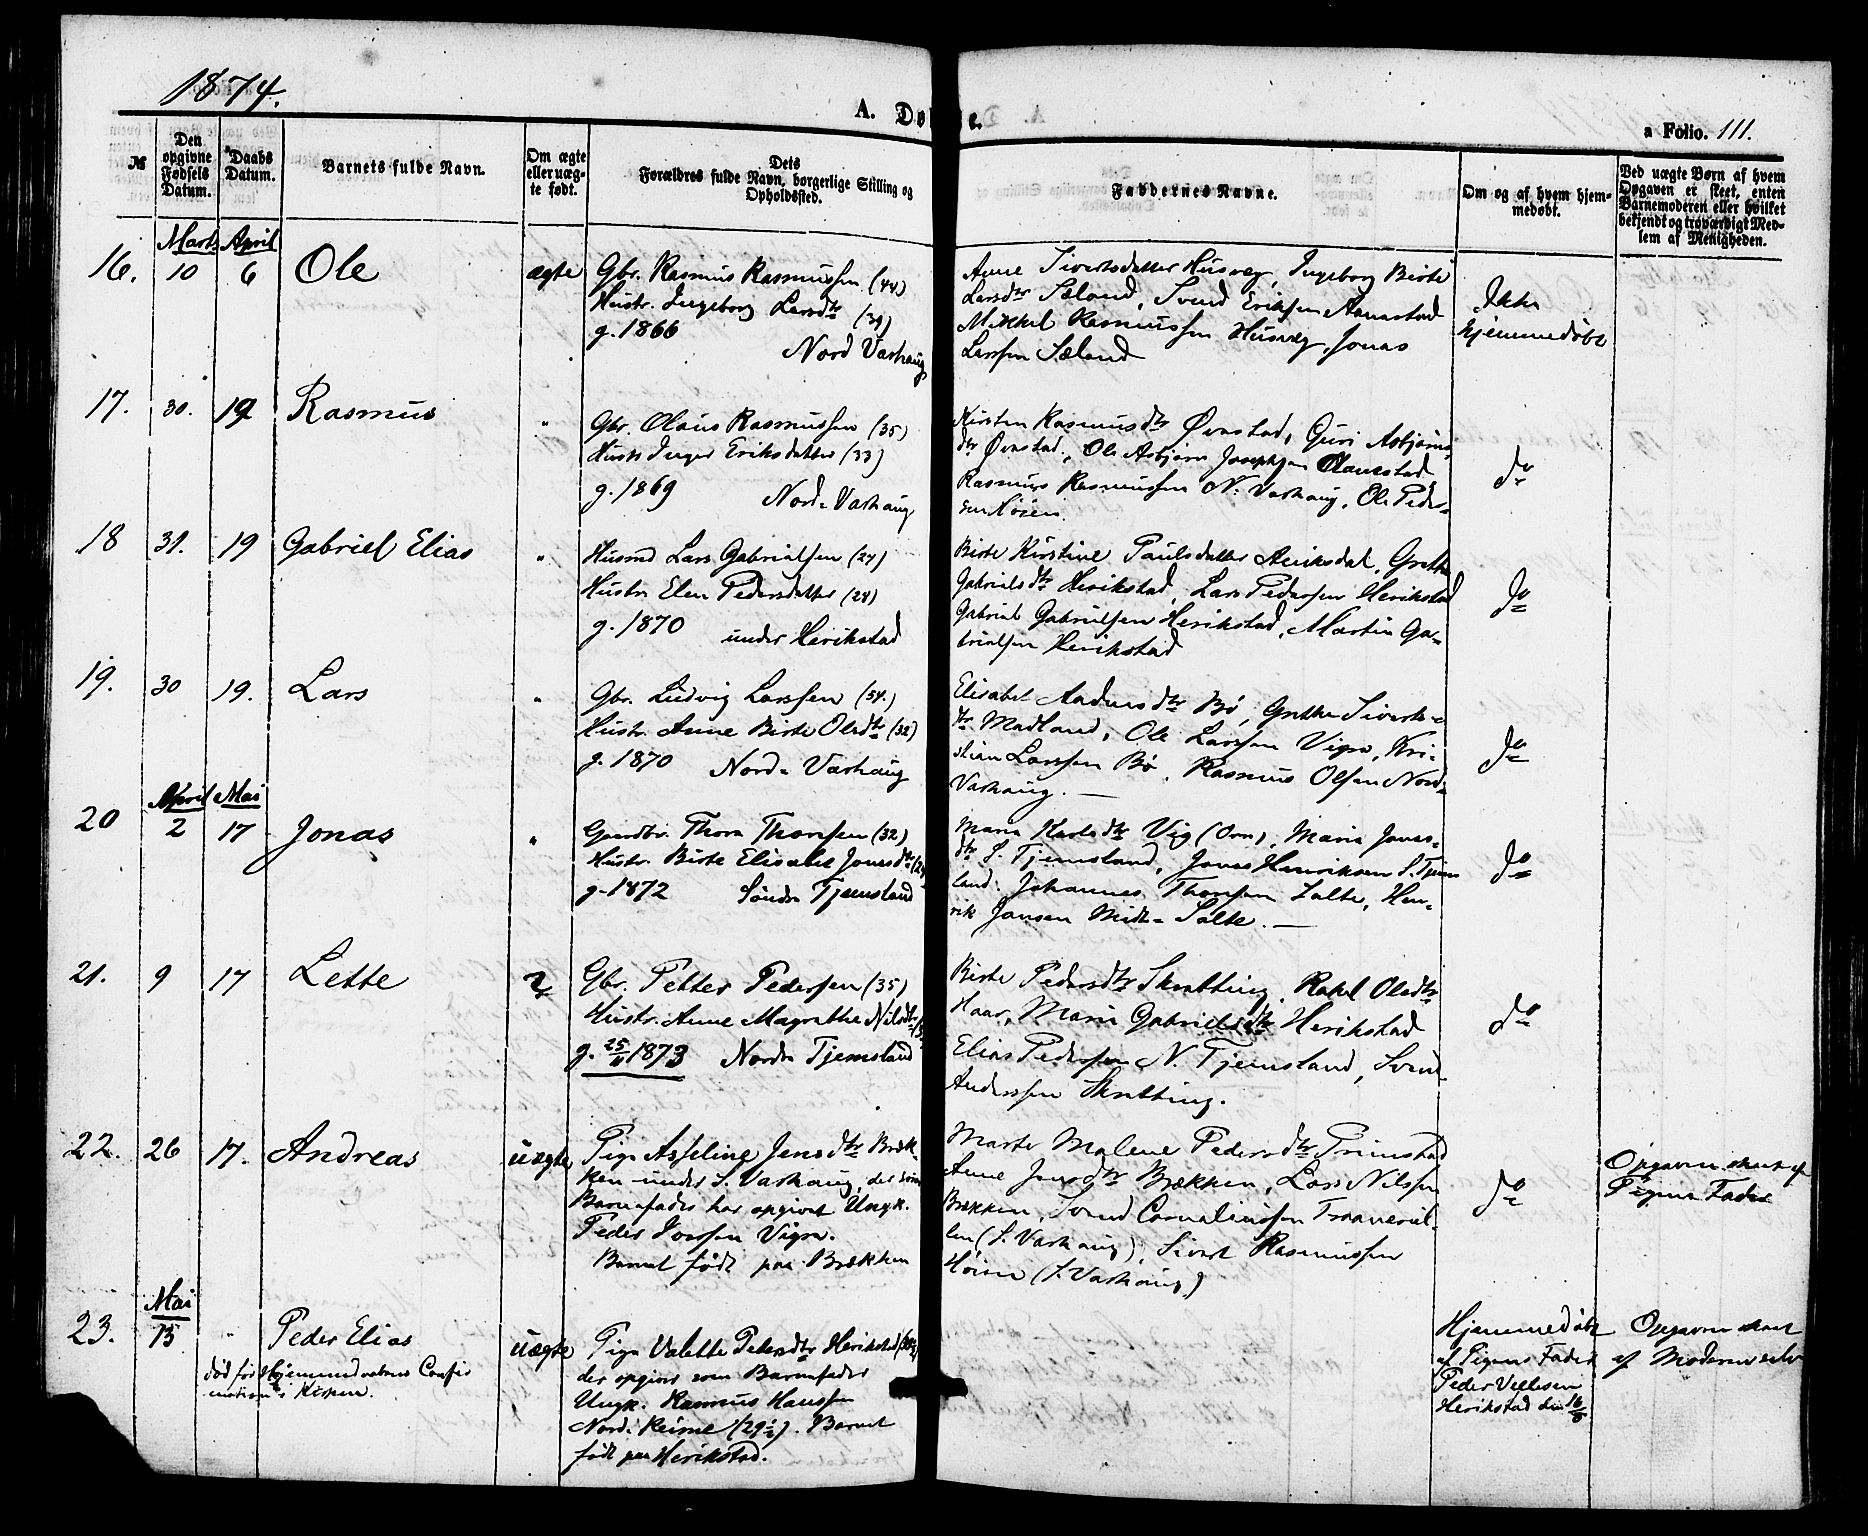 1874.
A. Døbte.
a Folio. 111.
№
Den opgivne Fødsels Datum.
Daabs Datum.
Barnets fulde Navn.
Om ægte eller uægte født.
Dets Forældres fulde Navn, borgerlige Stilling og Opholdssted.
Faddernes Navne.
Om og af hvem hjemmedøbt.
Ved uægte Børn af hvem Opgaven er skeet, enten Barnemoderen eller hvilket bekjendt og troværdigt Medlem af Menigheden.
Marts April
16. 10 6 Ole ægte
Gbr. Rasmus Rasmussen (44)
Hustr. Ingeborg Larsdtr (39)
g. 1866
Nord Varhaug
Anne Sivertsdatter Husveg, Ingeborg Birte
Larsdtr Sæland, Svend Eriksen Aanestad
Mikkel Rasmussen Husveg, Jonas
Larssen Sæland
Ikke
hjemmedøbt
17. 30. 19 Rasmus "
Gbr. Olaus Rasmussen (35)
Hustr Inger Eriksdatter (33)
g. 1869 Nord- Varhaug
Kirsten Rasmusdtr Øvestad, Guri Asbjørns-
dtr Øvestad, Ole Asbjørn Josephsen Aanestad
Rasmus Rasmussen N. Varhaug, Ole Peder-
sen Høien.
do
18 31. 19 Gabriel Elias "
Husmd Lars Gabrielsen (27)
Hustr Elen Pedersdatter (28)
g. 1870 under Herikstad
Birte Kirstine Paulsdatter Aniksdal, Grethe
Gabrielsdtr Herikstad, Lars Pedersen Herikstad
Gabriel Gabrielsen Herikstad, Martin Ga-
brielsen Herikstad
do
19. 30 19. Lars "
Gbr. Ludvig Larssen (54.)
Hustr. Anne Birte Olsdtr (32)
g. 1870 Nord- Varhaug
Elisabet Andersdtr Bø, Grethe Siverts-
dtr Madland, Ole Larssen Vigre, Kri-
stian Larssen Bø, Rasmus Olsen Nord-
Varhaug. —
do
April Mai
20 2 17 Jonas "
Gaardbr. Thore Thorsen (32)
Hustr. Birte Elisabet Jonasdtr
g. 1872 Søndre Tjemsland
Maria Karlsdtr Vig (Orre), Maria Jonas-
dtr S. Tjemsland, Jonas Henriksen S. Tjems
land. Johannes Thorsen Salte, Hen-
rik Jonsen Midt- Salte. —
do
21. 9 17 Lette ?
Gbr. Petter Pedersen (35)
Hustr. Anne Magrethe Nilsdtr
g. 25/11 1873 Nordre Tjemsland
Birte Pedersdtr Skratting, Rakel Olsdtr
Haar, Maria Gabrielsdtr Herikstad
Elias Pedersen N. Tjemsland, Svend
Anderssen Skratting.
do
22. 26 17. Andreas uægte
Pige Asseline Jensdtr Bræk-
ken under S. Varhaug, der som
Barnefader har opgivet Ungk.
Peder Vigre.
Barnet født paa Brækken
Marte Malene Pedersdtr Primstad
Anne Jensdtr Brækken, Lars Nilsen
Brækken, Svend Corneliussen
(S. Varhaug), Sivert Rasmussen
Høien (S. Varhaug)
do
Opgaven skeet af
Pigens Fader
Mai
23. 13 " Peder Elias uægte
død før Hjemmedaabens Confir
mation i Kirken.
Pige Valette Petersdtr Herikstad
der opgives som Barnefader
Ungk. Rasmus Hanssen
Nord- Reime (29½). Barnet
født paa Herikstad.
Hjemmedøbt
af Pigens Fader
Peder
Herikstad den 16/5
Opgaven skeet
af Moderen selv